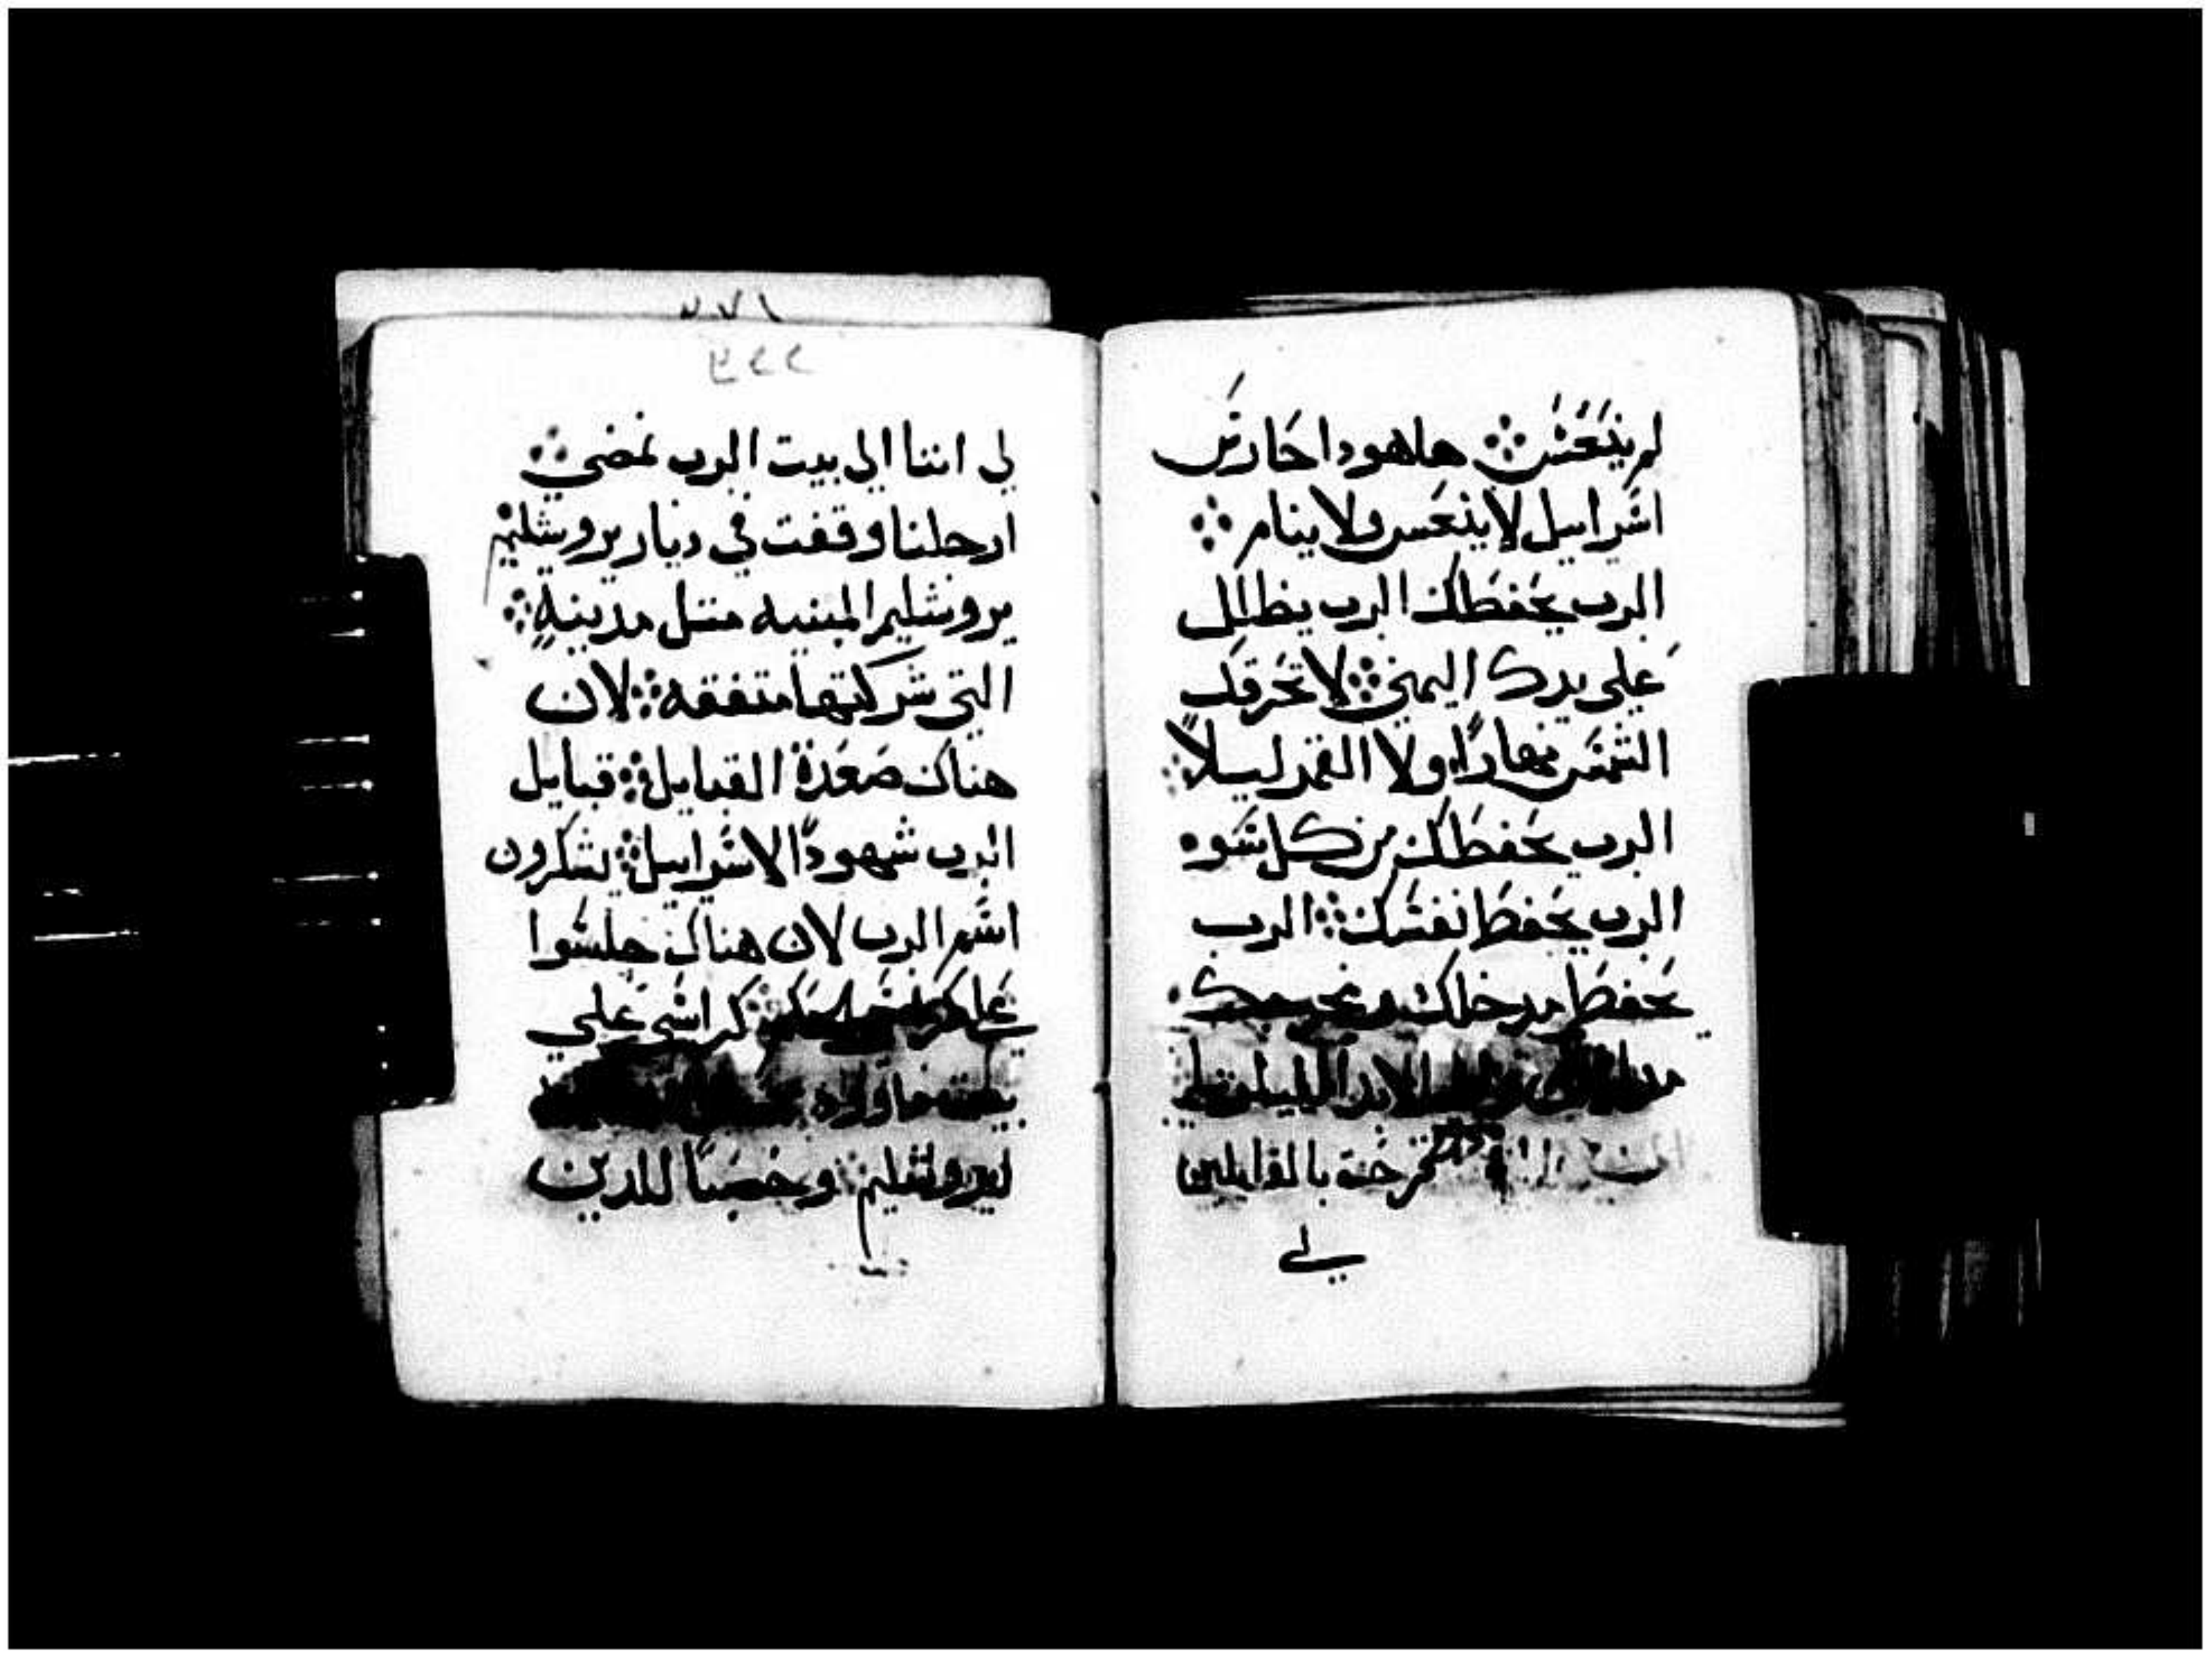 لم ينعس ⁘ هاهودا حارس
اسراييل لا ينعس ولا ينام ⁘
الرب يحفظك الرب يظلل
على يدك اليمني ⁘ لا تحرقك
الشمس نهاراً ولا القمر ليلاً ⁘
الرب يحفظك من كل سوه
الرب يحفظ نفسك ⁘ الرب
يحفظ مدخلك ومخرجك
الابد الليلويا
فرحت بالقايلين
لي
٢٧١
لي اننا الى بيت الرب نمضي ⁘
ارجلنا وقفت في ديار يروشليم
يروشليم المبنيه متل مدينةٍ ⁘
التي شركتها متفقه ⁘ لان
هناك صعدة القبايل ⁘ قبايل
الرب شهودًا لاسراييل ⁘ يشكرون
اسم الرب لان هناك جلسوا
كراسي علي
ليروشليم ⁘ وخصبًا للدين